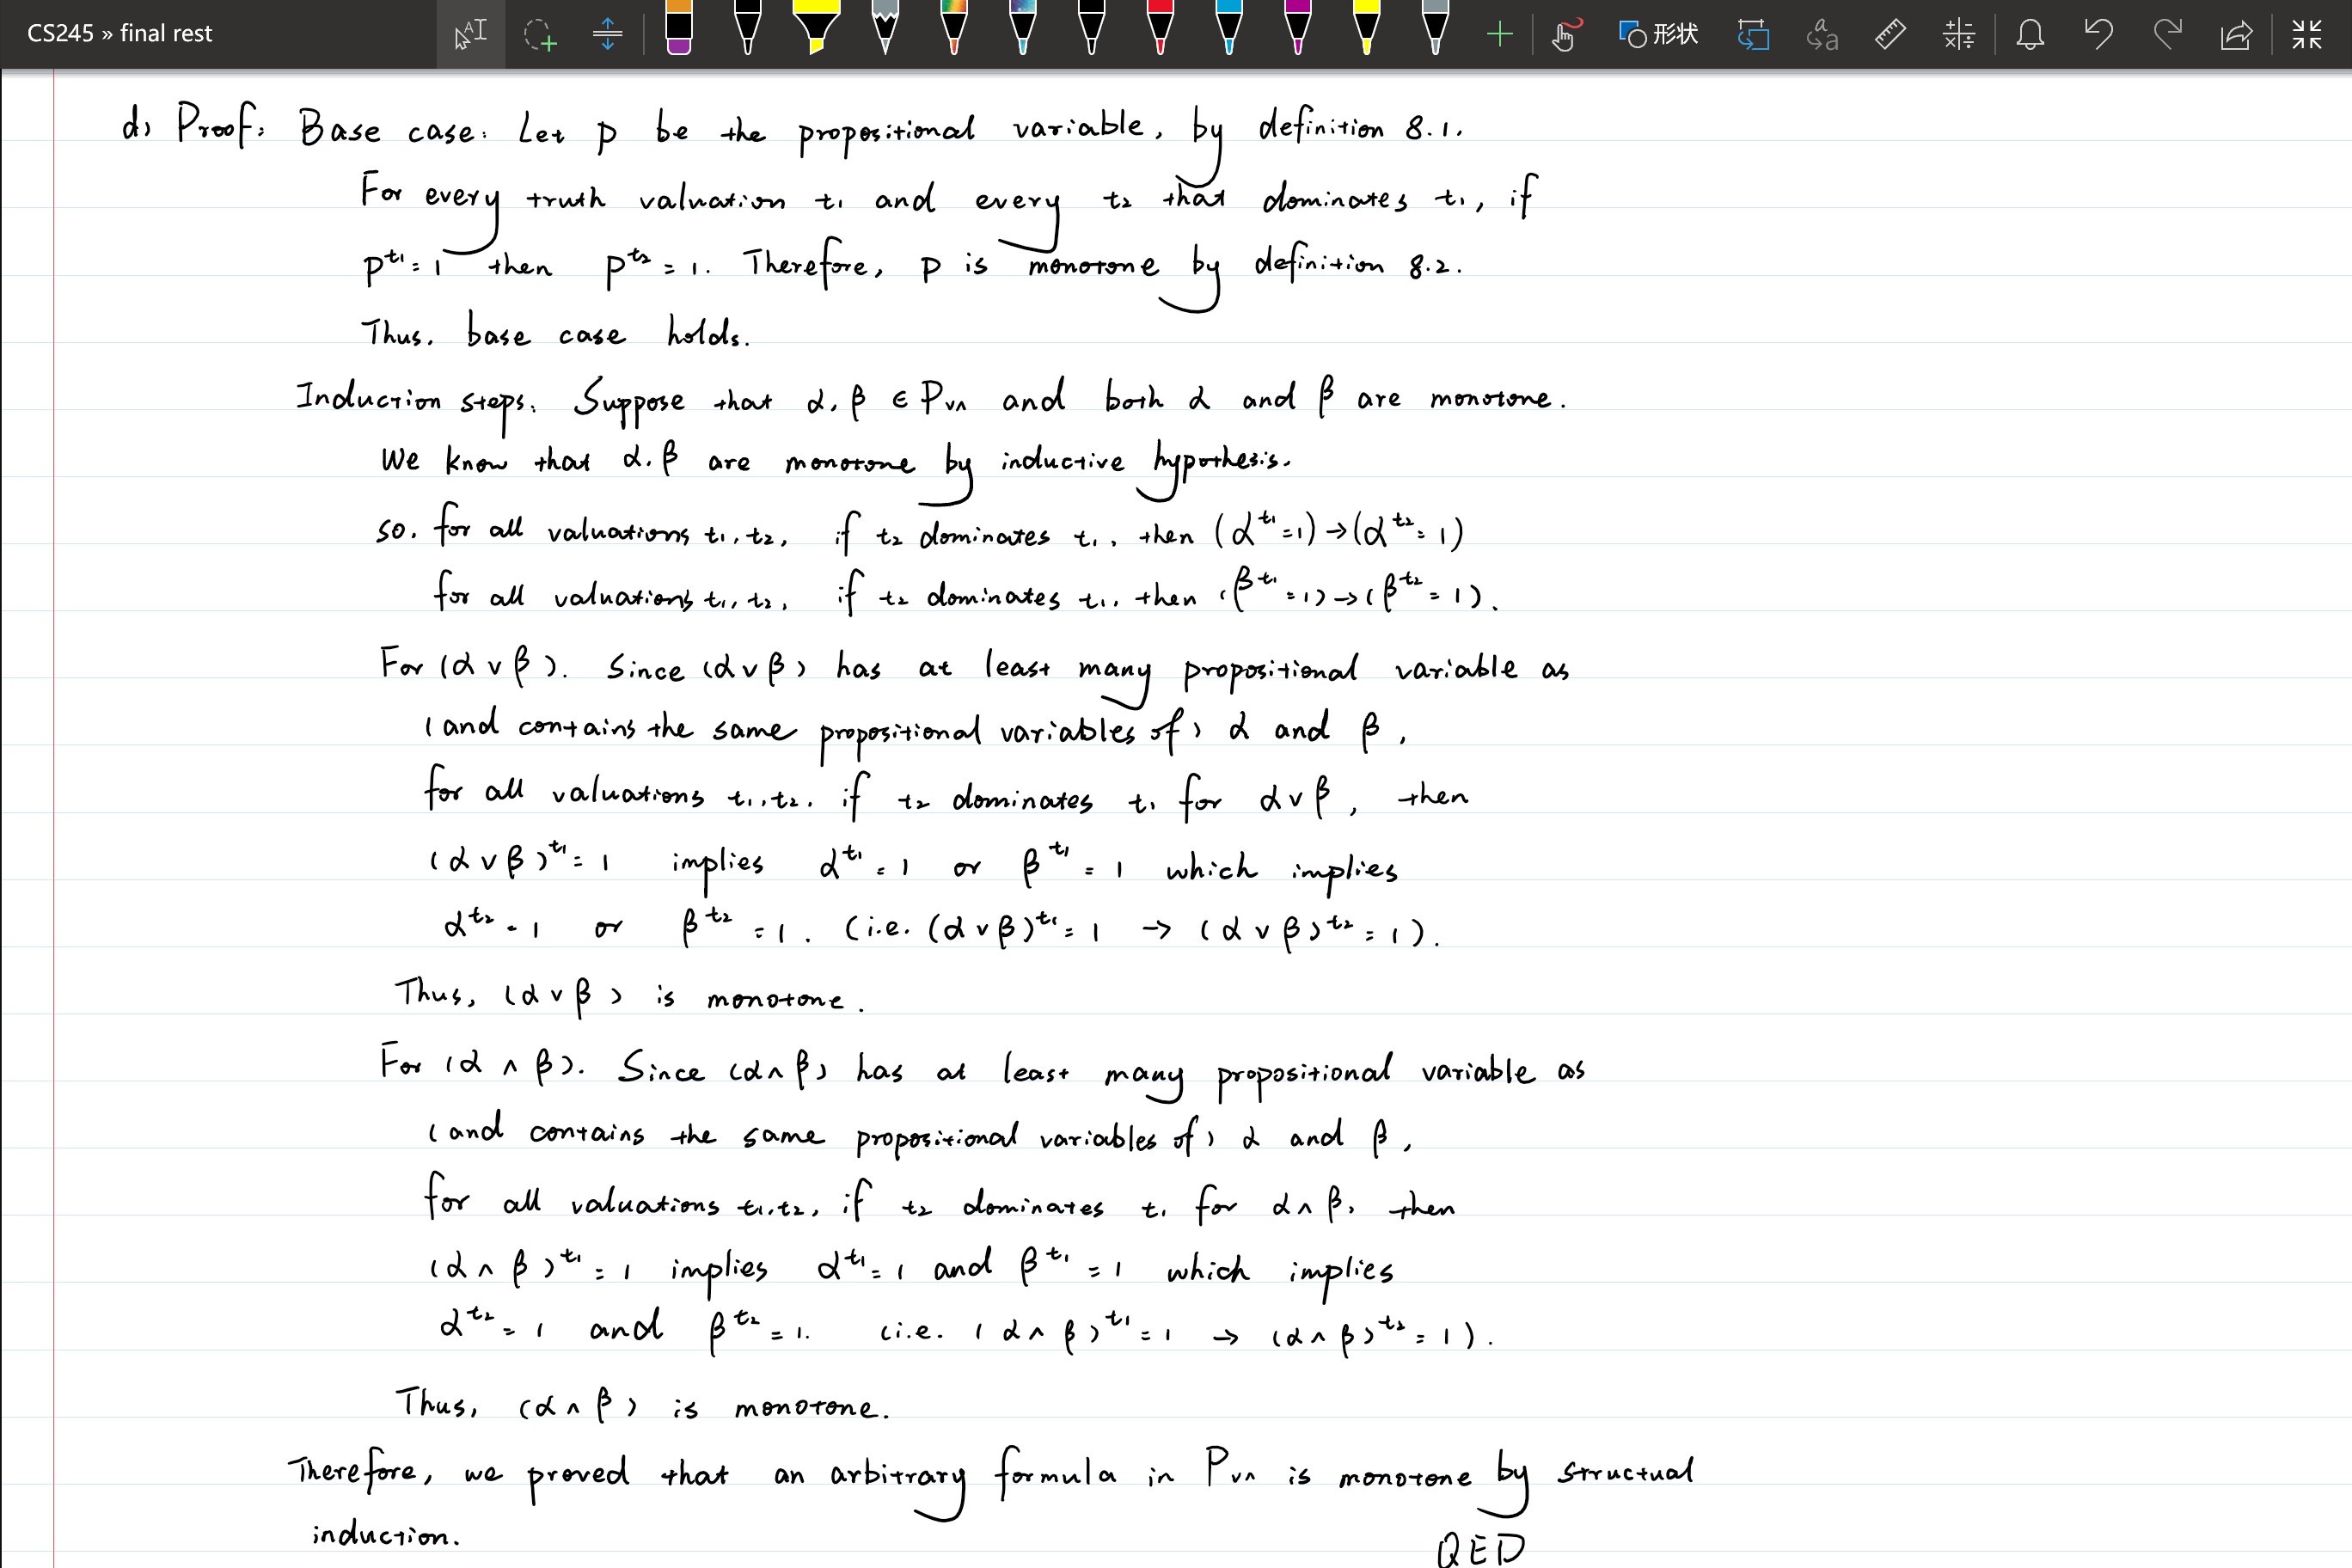 CS245 » final rest
形状
d) Proof: Base case: Let p be the propositional variable, by definition 8.1.
For every truth valuation t₁ and every t₂ that dominates t₁, if
p^t₁ = 1 then p^t₂ = 1. Therefore, p is monotone by definition 8.2.
Thus, base case holds.
Induction steps: Suppose that α, β ∈ P∨∧ and both α and β are monotone.
We know that α, β are monotone by inductive hypothesis.
so, for all valuations t₁, t₂, if t₂ dominates t₁, then (α^t₁ = 1) → (α^t₂ = 1)
for all valuations t₁, t₂, if t₂ dominates t₁, then (β^t₁ = 1) → (β^t₂ = 1).
For (α ∨ β). Since (α ∨ β) has at least many propositional variable as
(and contains the same propositional variables of) α and β,
for all valuations t₁, t₂, if t₂ dominates t₁ for α ∨ β, then
(α ∨ β)^t₁ = 1 implies α^t₁ = 1 or β^t₁ = 1 which implies
α^t₂ = 1 or β^t₂ = 1. (i.e. (α ∨ β)^t₁ = 1 → (α ∨ β)^t₂ = 1).
Thus, (α ∨ β) is monotone.
For (α ∧ β). Since (α ∧ β) has at least many propositional variable as
(and contains the same propositional variables of) α and β,
for all valuations t₁, t₂, if t₂ dominates t₁ for α ∧ β, then
(α ∧ β)^t₁ = 1 implies α^t₁ = 1 and β^t₁ = 1 which implies
α^t₂ = 1 and β^t₂ = 1. (i.e. (α ∧ β)^t₁ = 1 → (α ∧ β)^t₂ = 1).
Thus, (α ∧ β) is monotone.
Therefore, we proved that an arbitrary formula in P∨∧ is monotone by structual
induction.
QED